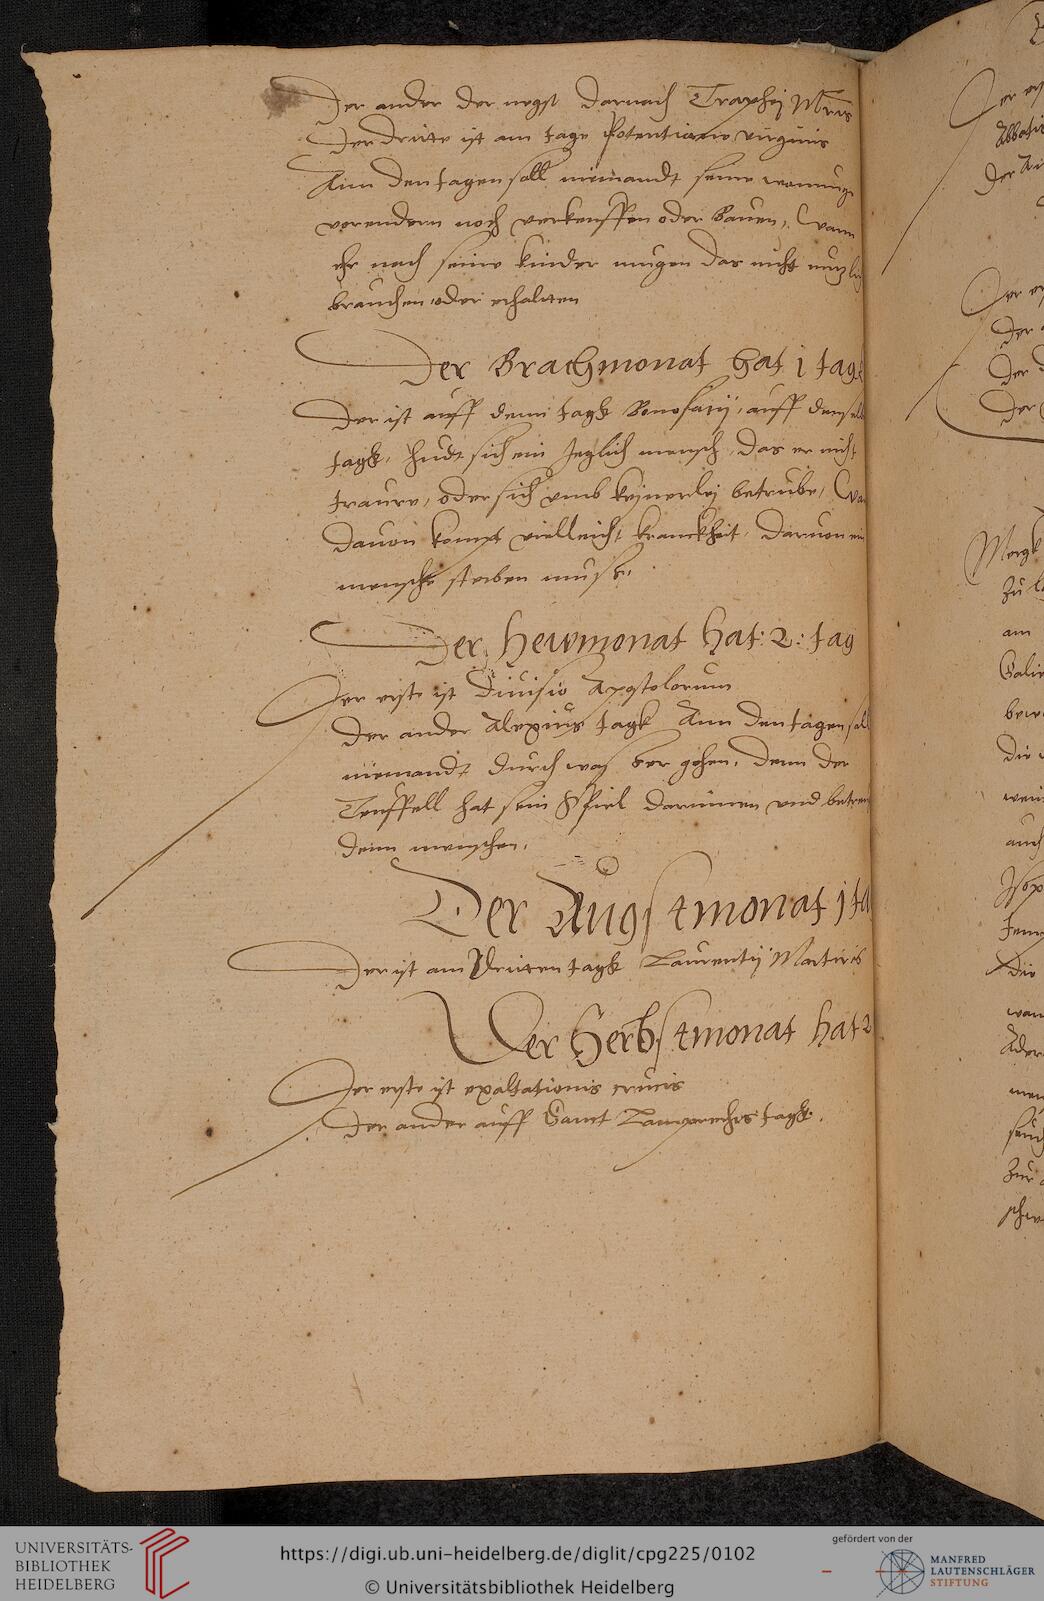 Der ander der negst darnach Trophej Mrris
Der dritte ist am tage Potentiane virginis
Ann den tagen soll niemandt seine wonunge
verendern noch verkeuffen oder Bauen, Wann
ehr noch seine kinder mugen das nicht nuzli
brauchen oder erhaltten
Der Brachmonat hat j tag
Der ist auff denn tagk Bonofatij, auff denselb
tagk, hudt sich ein Jeglich mensch, das er nicht
traure, oder sich umb keynerley betrube, Wa
dauon kompt villeicht kranckheit, daruon ein
mensche sterben muste.
Der Hewmonat hat: 2: tag
Der erste ist Diuisio Apostolorum
Der ander Alexius tagk Ann den tagen soll
niemandt durch wasser gehen, denn der
Teuffell hat sein Spiel darinnen und betreu
denn menschen.
Der Augstmonat j ta
Der ist am Dritten tagk Laurentij Martiris
Der Herbstmonat hat 2
Der erste ist exaltationis crucis
Der ander auff Sanct Lamprechts tagk.
Der
Der
Der
Mergk
zu
am
die
auch
Die
zur
UNIVERSITÄTS-
BIBLIOTHEK
HEIDELBERG
https://digi.ub.uni-heidelberg.de/diglit/cpg225/0102
© Universitätsbibliothek Heidelberg
gefördert von der
MANFRED
LAUTENSCHLÄGER
STIFTUNG